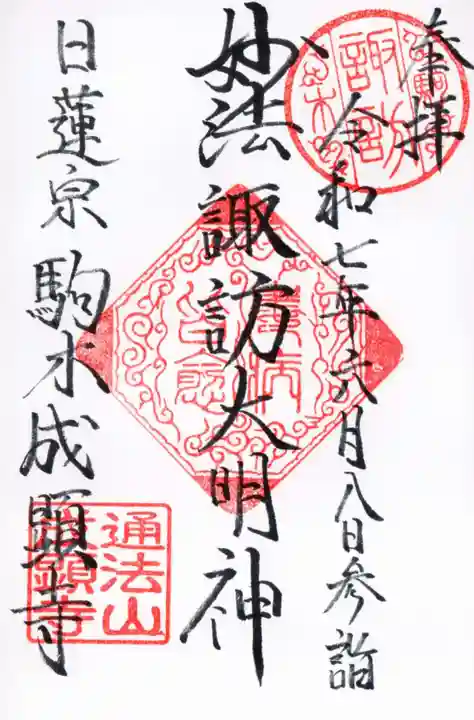 奉拝
令和七年六月八日参詣
妙法 諏訪大明神
日蓮宗 駒木 成顕寺
通法山